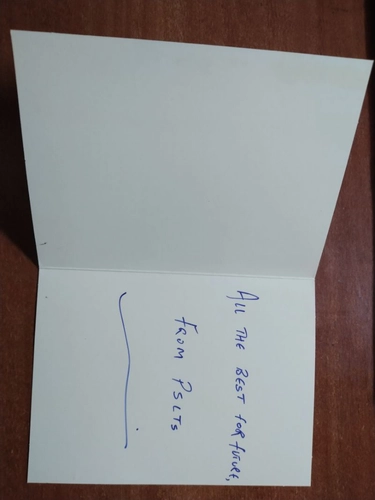 ALL THE BEST FOR FUTURE,
FROM PSLTS